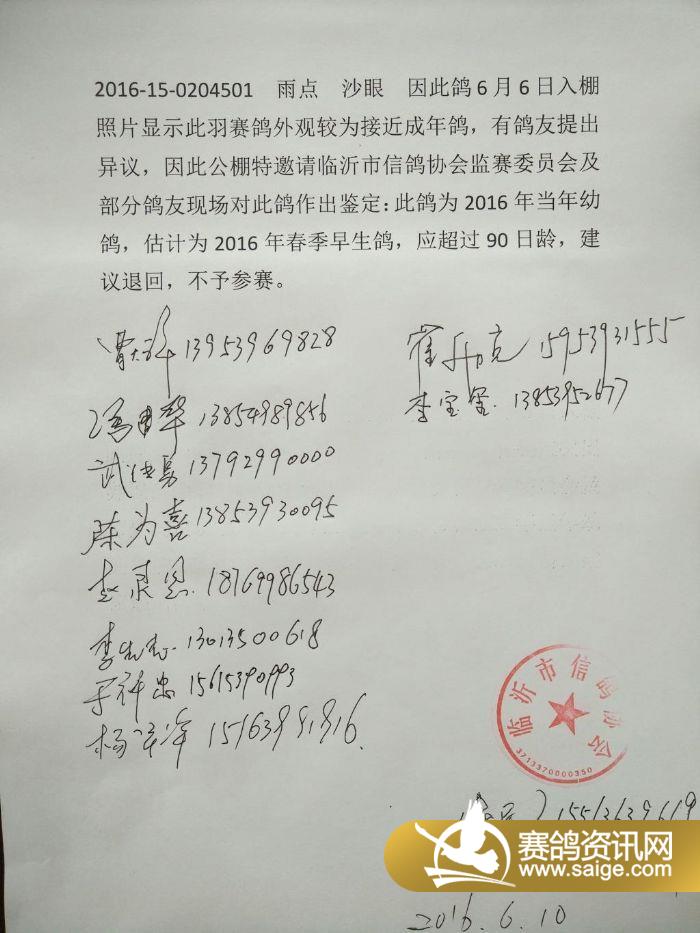 2016-15-0204501 雨点 沙眼 因此鸽6月6日入棚
照片显示此羽赛鸽外观较为接近成年鸽，有鸽友提出
异议，因此公棚特邀请临沂市信鸽协会监赛委员会及
部分鸽友现场对此鸽作出鉴定：此鸽为2016年当年幼
鸽，估计为2016年春季早生鸽，应超过90日龄，建
议退回，不予参赛。
13953969828
15953931555
李宝玺 13853952677
13854989856
13792990000
陈为喜 13853930095
18769986543
13013500618
15615390993
15163981816
临沂市信鸽协会
3713370000350
15563639619
赛鸽资讯网
www.saige.com
2016.6.10